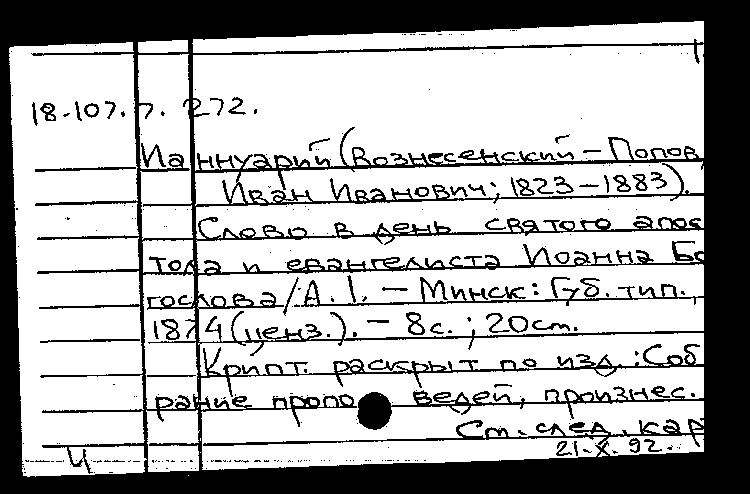 18-107.7. 272.
Ианнуарий (Вознесенский – Попов
Иван Иванович; 1823–1883).
Слово в день святого апос
тола и евангелиста Иоанна Бо
гослова / А. I. – Минск: Губ. тип.,
1874 (ценз.). – 8 с. ; 20 см.
Крипт. раскрыт по изд.: Соб
рание проповедей, произнес.
См. след. кар
21.X.92.